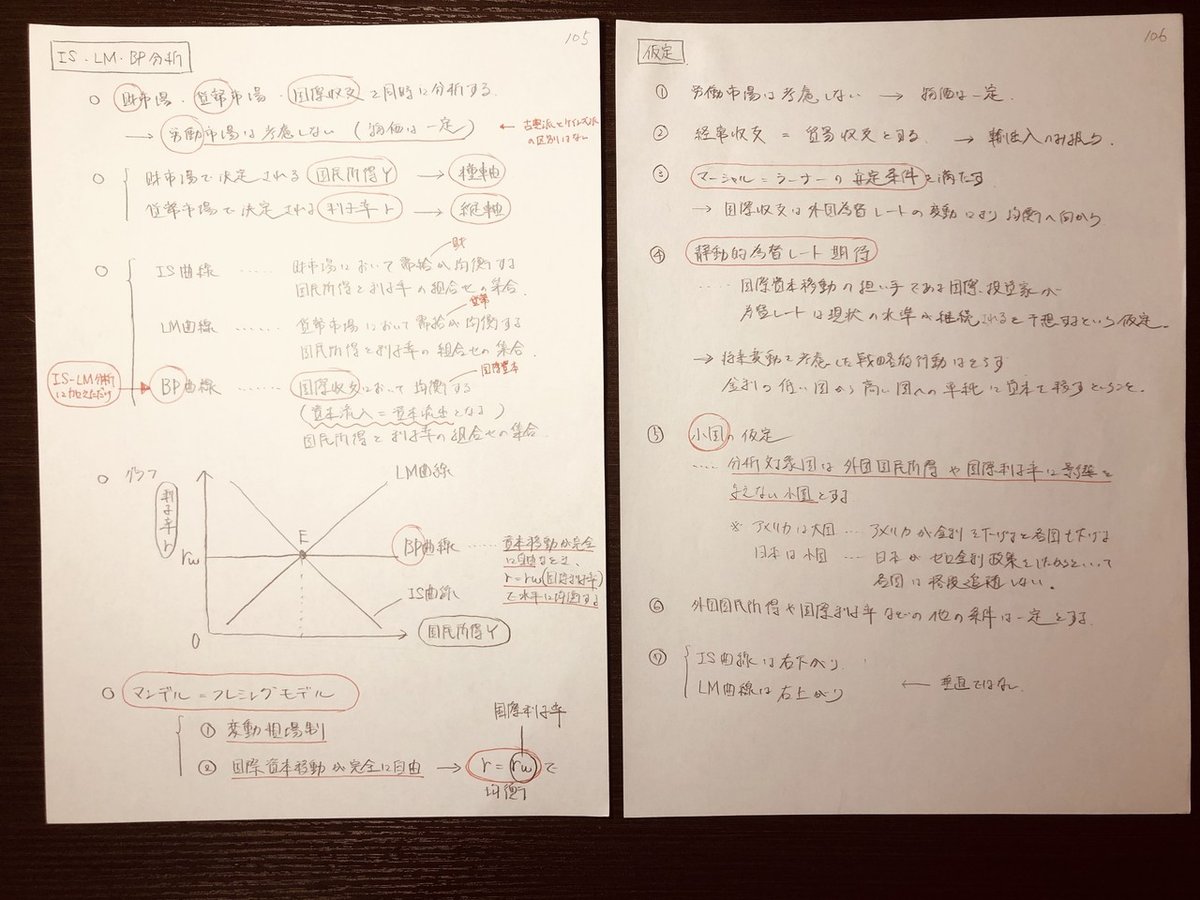 105
IS・LM・BP分析
○ 財市場・貨幣市場・国際収支を同時に分析する。
→ 労働市場は考慮しない (物価は一定) ← 古典派とケインズ派の区別はない
○ 財市場で決定される 国民所得Y → 横軸
貨幣市場で決定される 利子率r → 縦軸
財
○ IS曲線 …… 財市場において需給が均衡する
国民所得と利子率の組合せの集合.
貨幣
LM曲線 …… 貨幣市場において需給が均衡する
国民所得と利子率の組合せの集合.
国際資本
IS-LM分析に加えただけ
BP曲線 …… 国際収支において均衡する
(資本流入=資本流出となる)
国民所得と利子率の組合せの集合.
○ グラフ
利子率r
LM曲線
E
rw
BP曲線 …… 資本移動が完全
に自由なとき、
r=rw(国際利子率)
で水平に均衡する
IS曲線
O
国民所得Y
○ マンデル=フレミングモデル
国際利子率
① 変動相場制
② 国際資本移動が完全に自由 → r=rw で
均衡
106
仮定
① 労働市場は考慮しない → 物価は一定.
② 経常収支 = 貿易収支とする. → 輸出入のみ扱う.
③ マーシャル=ラーナーの安定条件を満たす
→ 国際収支は外国為替レートの変動により均衡へ向かう
④ 静動的為替レート期待
…… 国際資本移動の担い手である国際投資家が
為替レートは現状の水準が継続されると予想するという仮定.
→ 将来変動を考慮した戦略的行動はとらず
金利の低い国から高い国への単純に資本を移すということ.
⑤ 小国の仮定
…… 分析対象国は外国国民所得や国際利子率に影響を
与えない小国とする
※ アメリカは大国 … アメリカが金利を下げると各国も下げる
日本は小国 … 日本がゼロ金利政策をしたからといって
各国は程度追随しない。
⑥ 外国国民所得や国際利子率などの他の条件は一定とする.
⑦ IS曲線は右下がり.
LM曲線は右上がり ← 垂直ではない.